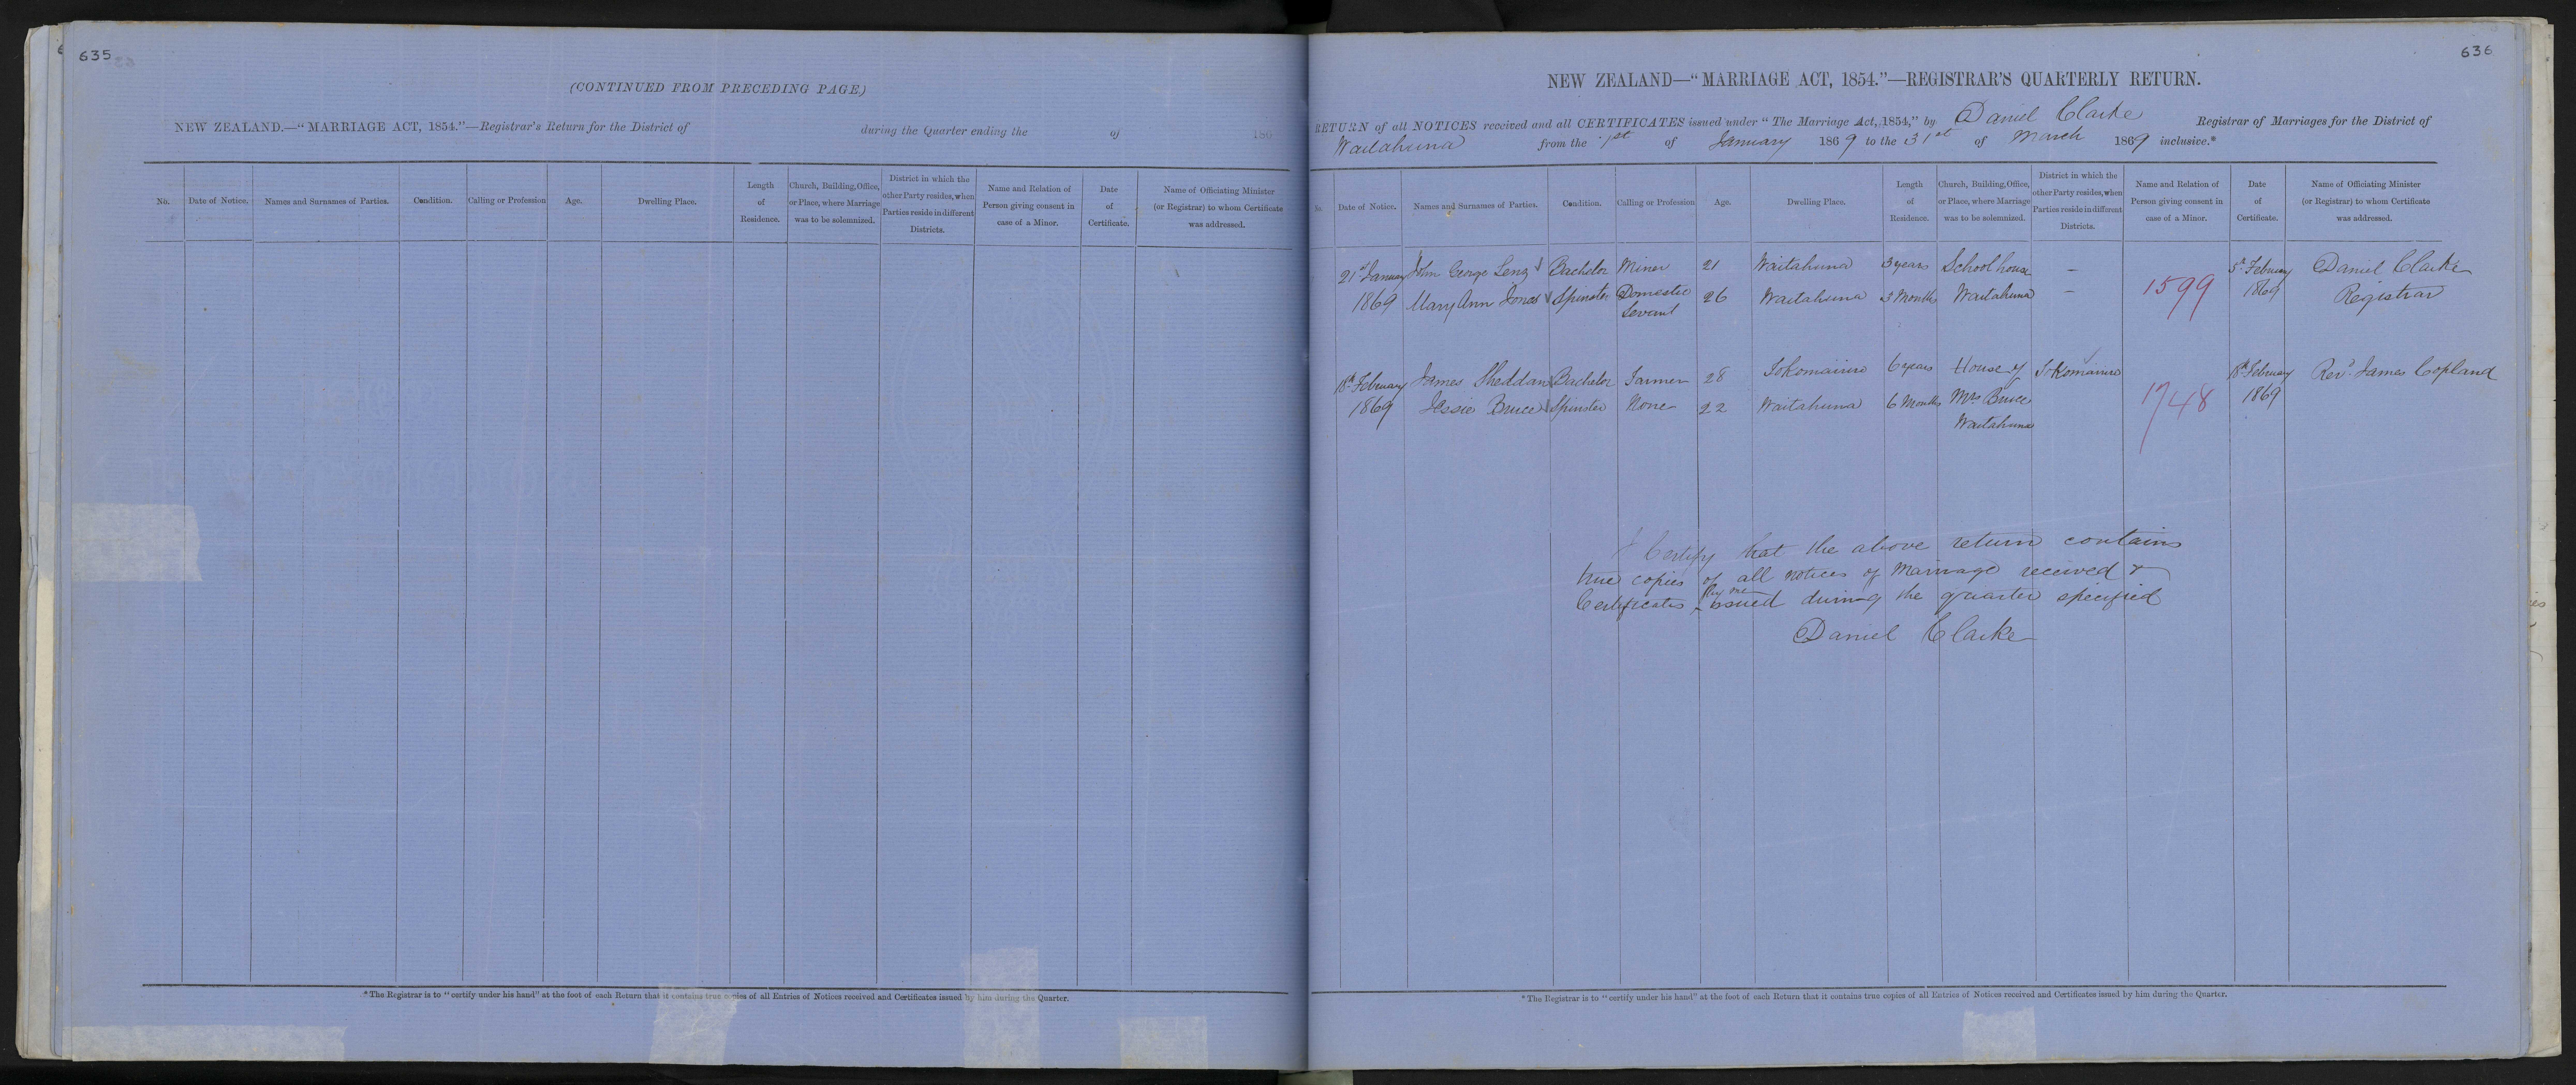 635
(CONTINUED FROM PRECEDING PAGE)
NEW ZEALAND.—"MARRIAGE ACT, 1854."—Registrar's Return for the District of during the Quarter ending the of 186
No. Date of Notice. Names and Surnames of Parties. Condition. Calling or Profession Age. Dwelling Place. Length of Residence. Church, Building, Office, or Place, where Marriage was to be solemnized. District in which the other Party resides, when Parties reside in different Districts. Name and Relation of Person giving consent in case of a Minor. Date of Certificate. Name of Officiating Minister (or Registrar) to whom Certificate was addressed.
*The Registrar is to "certify under his hand" at the foot of each Return that it contains true copies of all Entries of Notices received and Certificates issued by him during the Quarter.
636
NEW ZEALAND—"MARRIAGE ACT, 1854."—REGISTRAR'S QUARTERLY RETURN.
RETURN of all NOTICES received and all CERTIFICATES issued under "The Marriage Act, 1854," by Daniel Clarke Registrar of Marriages for the District of
Waitahuna from the 1st of January 1869 to the 31st of March 1869 inclusive.*
No. Date of Notice. Names and Surnames of Parties. Condition. Calling or Profession Age. Dwelling Place. Length of Residence. Church, Building, Office, or Place, where Marriage was to be solemnized. District in which the other Party resides, when Parties reside in different Districts. Name and Relation of Person giving consent in case of a Minor. Date of Certificate. Name of Officiating Minister (or Registrar) to whom Certificate was addressed.
21st January John George Bachelor Miner 21 Waitahuna 3 years School house — 5th February Daniel Clarke
1869 Mary Ann Jones Spinster Domestic 26 Waitahuna 3 Months Waitahuna — 1599 1869 Registrar
Servant
18th February James Sheddan Bachelor Farmer 28 Tokomairiro 6 years House of Tokomairiro 18th February Revd. James Copland
1869 Jessie Bruce Spinster None 22 Waitahuna 6 Months Mrs Bruce 1748 1869
Waitahuna
I Certify that the above return contains
true copies of all notices of Marriage received &
Certificates by me issued during the quarter specified
Daniel Clarke
*The Registrar is to "certify under his hand" at the foot of each Return that it contains true copies of all Entries of Notices received and Certificates issued by him during the Quarter.